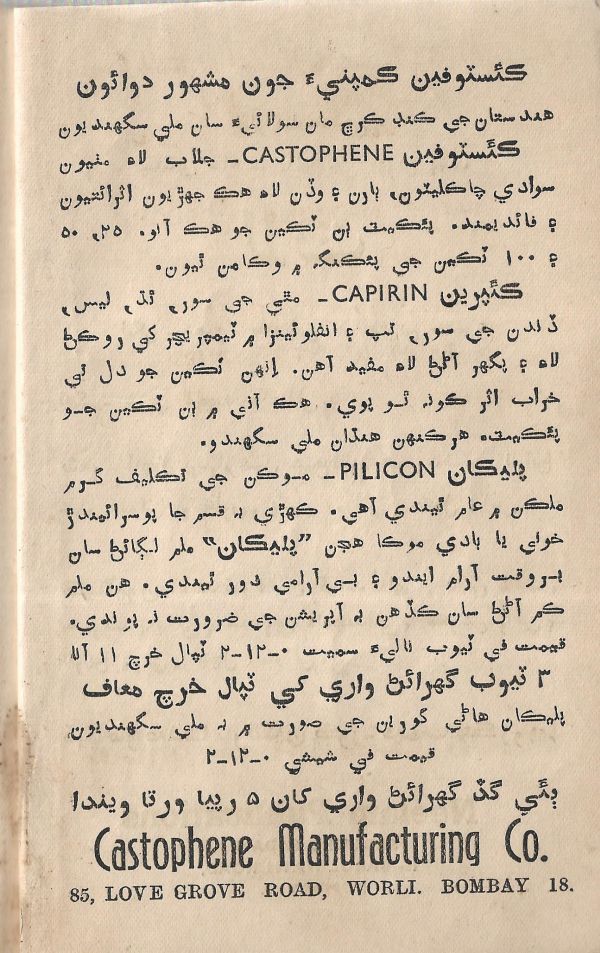 ڪئسٽوفين ڪمپنيءَ جون مشهور دوائون
هندستان جي ڪنڊ ڪڙڇ مان سولائيءَ سان ملي سگهنديون
ڪئسٽوفين CASTOPHENE – جلاب لاءِ مٺيون
سوادي چاڪليٽون، ٻارن ۽ وڏن لاءِ هڪ جهڙيون اثرائتيون
۽ فائديمند. پئڪيٽ ٻن ٽڪين جو هڪ آنو. ۲۵، ۵۰
۽ ۱۰۰ ٽڪين جي پئڪنگ ۾ وڪامن ٿيون.
ڪئپرين CAPIRIN – مٿي جي سور، ٿڌ، ليس،
ڏندن جي سور، تپ ۽ انفلوئينزا ۾ ٽيمپريچر کي روڪڻ
لاءِ ۽ پگهر آڻڻ لاءِ مفيد آهن. انهن ٽڪين جو دل تي
خراب اثر ڪونہ ٿو پوي. هڪ آني ۾ ٻن ٽڪين جو
پئڪيٽ، هر ڪنهن هنڌان ملي سگهندو.
پليڪان PILICON – موڪن جي تڪليف گرم
ملڪن ۾ عام ٿيندي آهي. ڪهڙي بہ قسم جا پوسرائيندڙ
خوني يا بادي موڪا هجن ”پليڪان“ ملم لڳائڻ سان
بروقت آرام ايندو ۽ بي آرامي دور ٿيندي. هن ملم
ڪم آڻڻ سان ڪڏهن بہ آپريشن جي ضرورت نہ پوندي.
قيمت في ٽيوب ناليءَ سميت ۰–۱۲–۲ ٽپال خرچ ۱۱ آنا
۳ ٽيوب گهرائڻ واري کي ٽپال خرچ معاف
پليڪان هاڻي گورين جي صورت ۾ بہ ملي سگهنديون
قيمت في شيشي ۰–۱۲–۲
ٻئي گڏ گهرائڻ واري کان ۵ رپيا ورتا ويندا
Castophene Manufacturing Co.
85, LOVE GROVE ROAD, WORLI. BOMBAY 18.